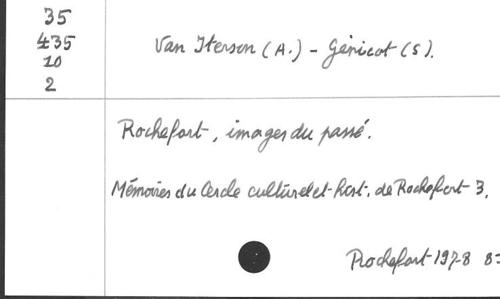 35
435
10
2
Van Iterson (A.) - Génicot (S).
Rochefort, images du passé.
Mémoires du Cercle culturel et hist. de Rochefort 3,
Rochefort 1978 8=